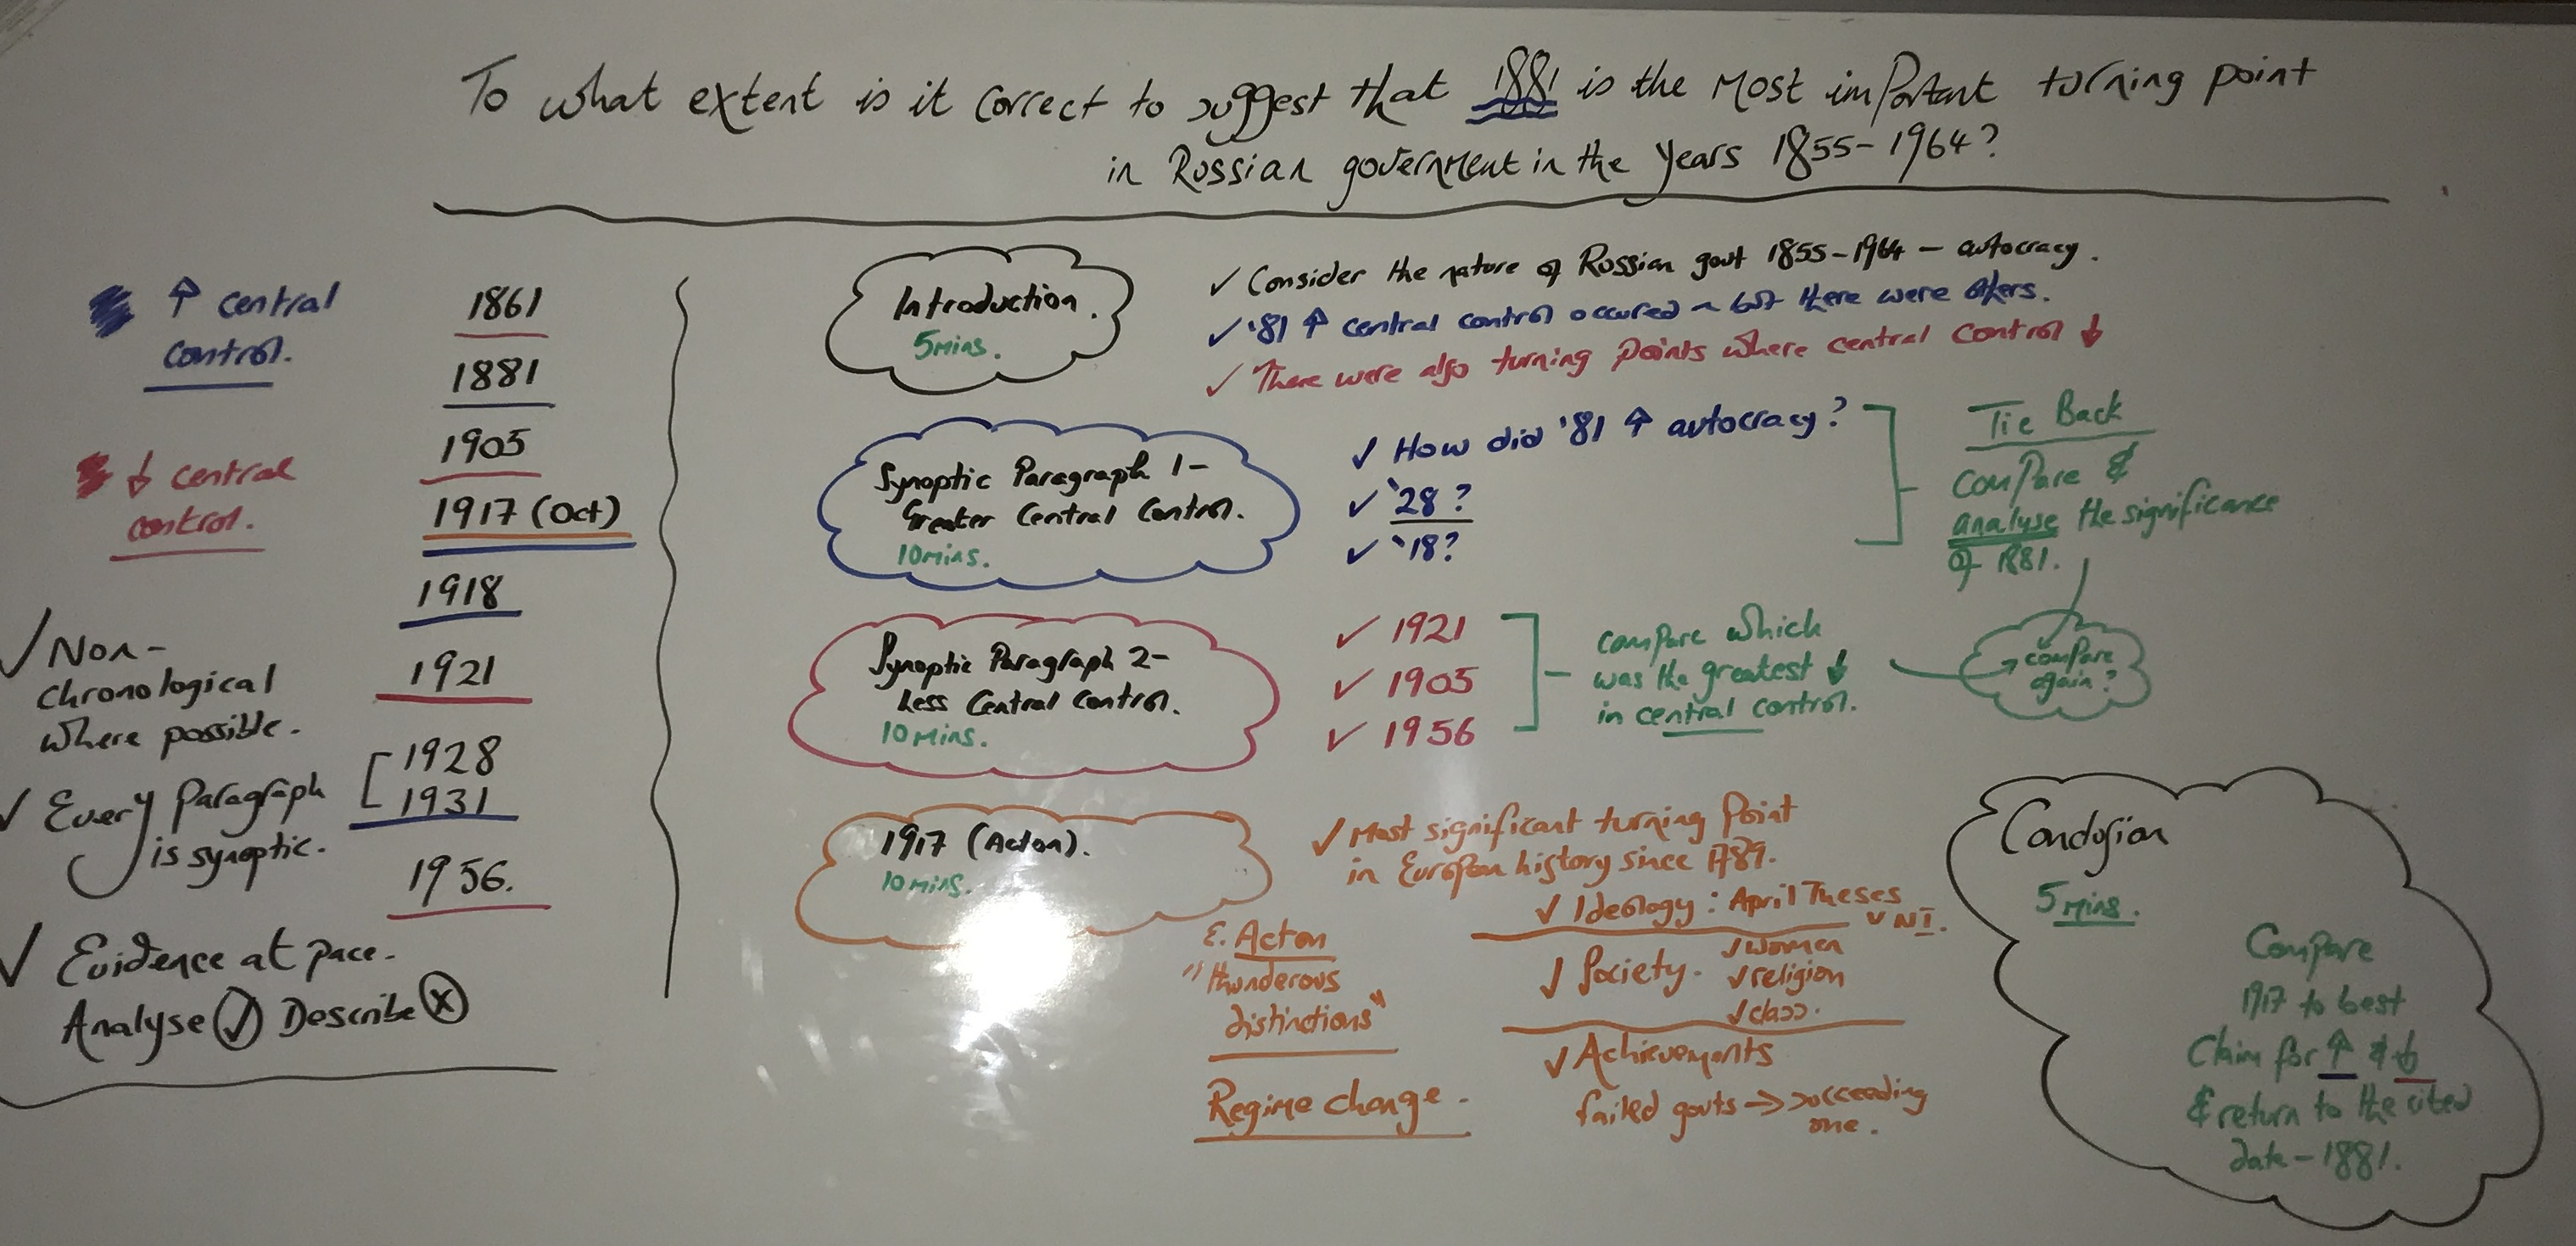 To what extent is it correct to suggest that 1881 is the most important turning point
in Russian government in the years 1855-1964?
↑ central
control.
↓ central
control.
✓ Non-
chronological
where possible.
✓ Every Paragraph
is synoptic.
✓ Evidence at pace.
Analyse ✓ Describe X
1861
1881
1905
1917 (Oct)
1918
1921
1928
1931
1956.
Introduction.
5mins.
✓ Consider the nature of Russian govt 1855-1964 - autocracy.
✓ '81 ↑ central control occured ~ but there were others.
✓ There were also turning points where central control ↓
Synoptic Paragraph 1-
Greater Central Control.
10mins.
✓ How did '81 ↑ autocracy?
✓ '28?
✓ '18?
Tie Back
Compare &
analyse the significance
of 1881.
Synoptic Paragraph 2-
Less Central Control.
10 mins.
✓ 1921
✓ 1905
✓ 1956
compare which
was the greatest ↓
in central control.
compare
again?
1917 (Acton).
10 mins.
✓ Most significant turning point
in European history since 1789.
E. Acton
"thunderous
distinctions"
Regime change.
✓ Ideology: April Theses
v NI.
✓ Society.
✓ women
✓ religion
✓ class.
✓ Achievements
failed govts → succeeding
one.
Conclusion
5 mins.
Compare
1917 to best
Claim for ↑ & ↓
& return to the cited
date - 1881.